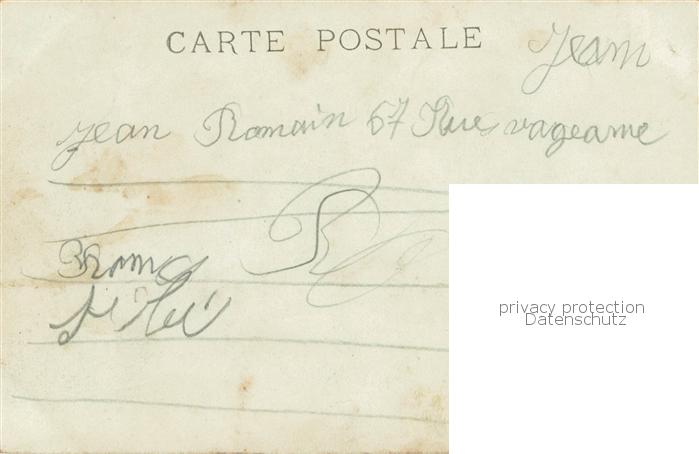 CARTE POSTALE
Jean
Jean Romain 67 Rue vagearne
R
Rom
privacy protection
Datenschutz